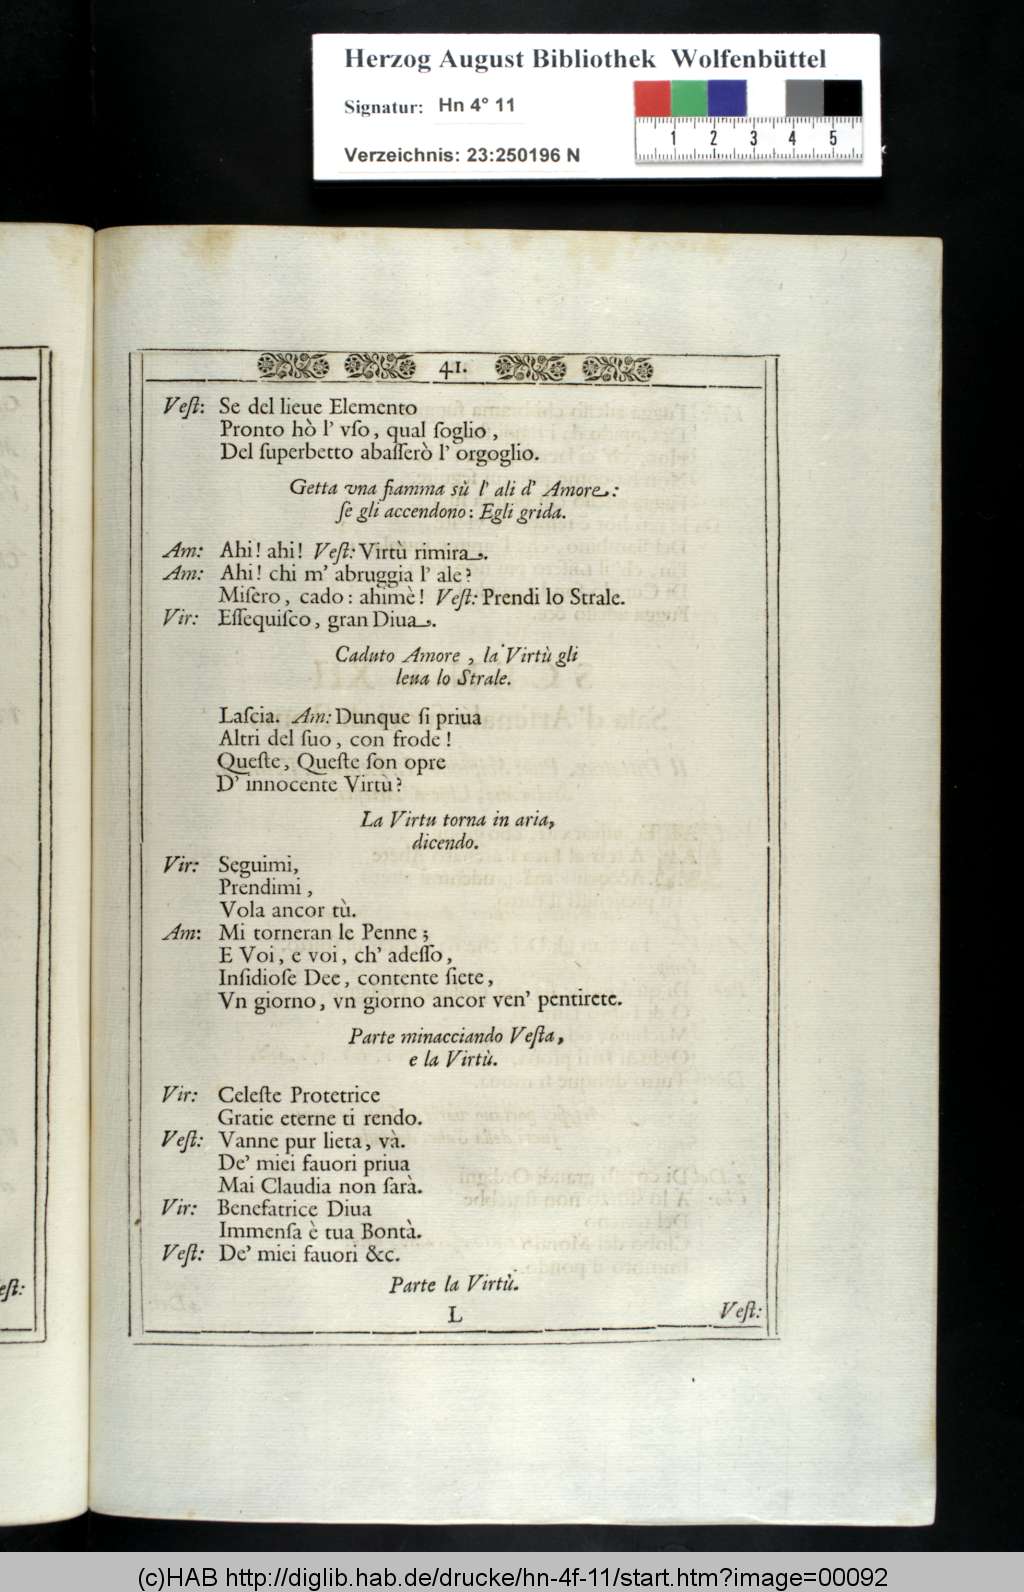 Herzog August Bibliothek Wolfenbüttel
Signatur: Hn 4° 11
Verzeichnis: 23:250196 N
1 2 3 4 5
41.
Veſt: Se del lieue Elemento
Pronto hò l' vſo, qual ſoglio,
Del ſuperbetto abaſſerò l' orgoglio.
Getta vna fiamma sù l' ali d' Amore:
ſe gli accendono: Egli grida.
Am: Ahi! ahi! Veſt: Virtù rimira.
Am: Ahi! chi m' abruggia l' ale?
Miſero, cado: ahimè! Veſt: Prendi lo Strale.
Vir: Eſſequiſco, gran Diua.
Caduto Amore, la Virtù gli
leua lo Strale.
Laſcia. Am: Dunque ſi priua
Altri del ſuo, con frode!
Queſte, Queſte ſon opre
D' innocente Virtù?
La Virtu torna in aria,
dicendo.
Vir: Seguimi,
Prendimi,
Vola ancor tù.
Am: Mi torneran le Penne;
E Voi, e voi, ch' adeſſo,
Inſidioſe Dee, contente ſiete,
Vn giorno, vn giorno ancor ven' pentirete.
Parte minacciando Veſta,
e la Virtù.
Vir: Celeſte Protetrice
Gratie eterne ti rendo.
Veſt: Vanne pur lieta, và.
De' miei fauori priua
Mai Claudia non ſarà.
Vir: Benefatrice Diua
Immenſa è tua Bontà.
Veſt: De' miei fauori &c.
Parte la Virtù.
L
Veſt:
eſt:
(c)HAB http://diglib.hab.de/drucke/hn-4f-11/start.htm?image=00092